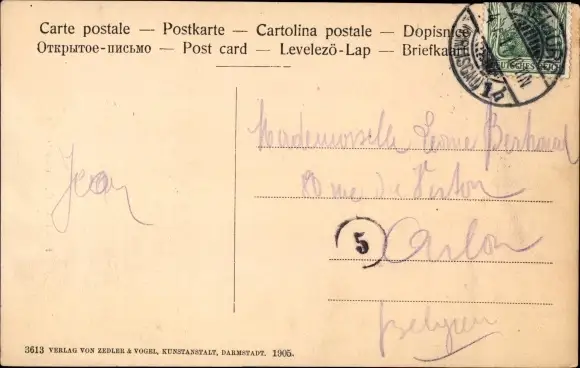 Carte postale — Postkarte — Cartolina postale — Dopisnice
Открытое-письмо — Post card — Levelező-Lap — Briefkaart
Mademoiselle Leonie
Jean
Rue de Virton
5
Arlon
Belgien
3613 VERLAG VON ZEDLER & VOGEL, KUNSTANSTALT, DARMSTADT. 1905.